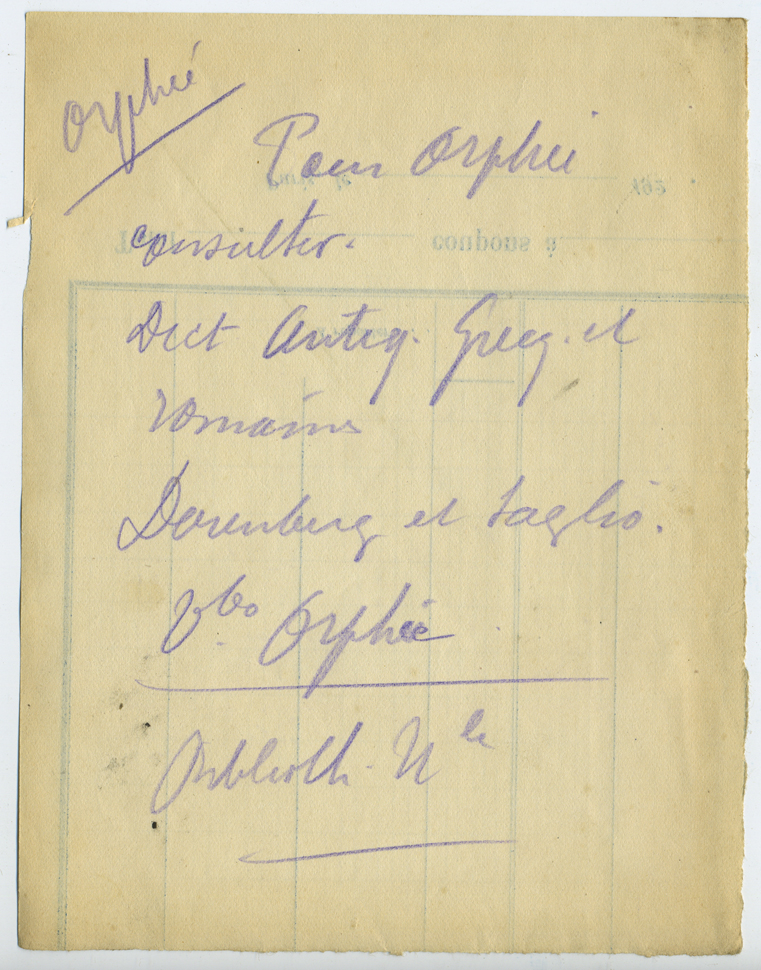 Orphée
Pour Orphée
consulter.
Dict Antiq. Grecq. et
romaines
Darenberg et Saglio.
Vbo Orphée
Biblioth. Nle
coupons à